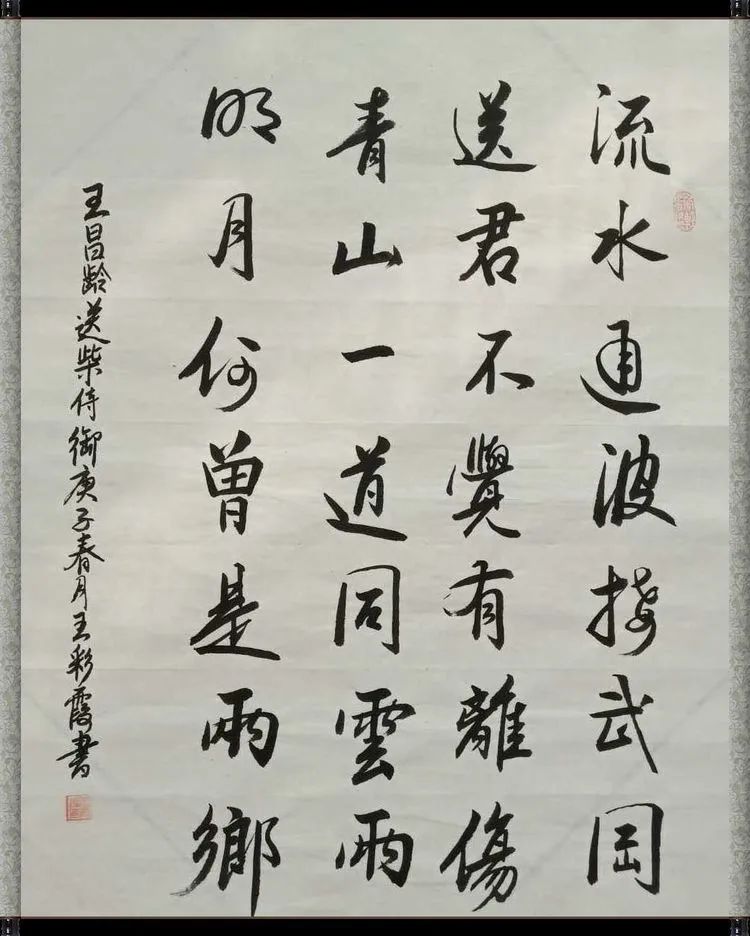 流水通波接武冈
送君不覺有離傷
青山一道同雲雨
明月何曾是兩鄉
王昌龄送柴侍御庚子春月王彩霞书